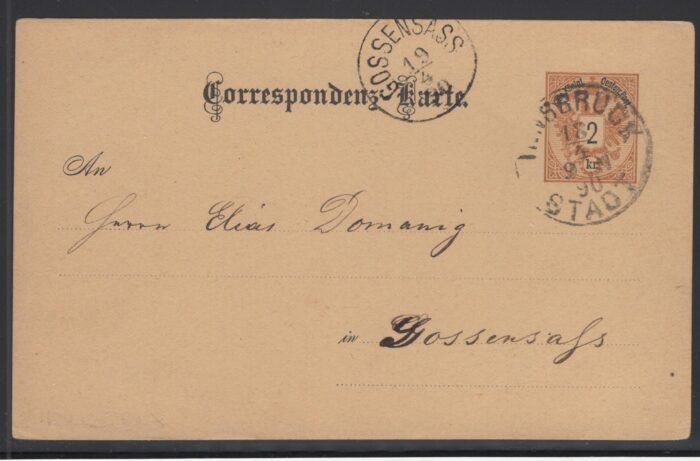 GOSSENSASS
19
4
90
Correspondenz-Karte.
INNSBRUCK
18
4
9
90
STADT
2
kr
An
Herrn Elias Domanig
in Gossensaſs